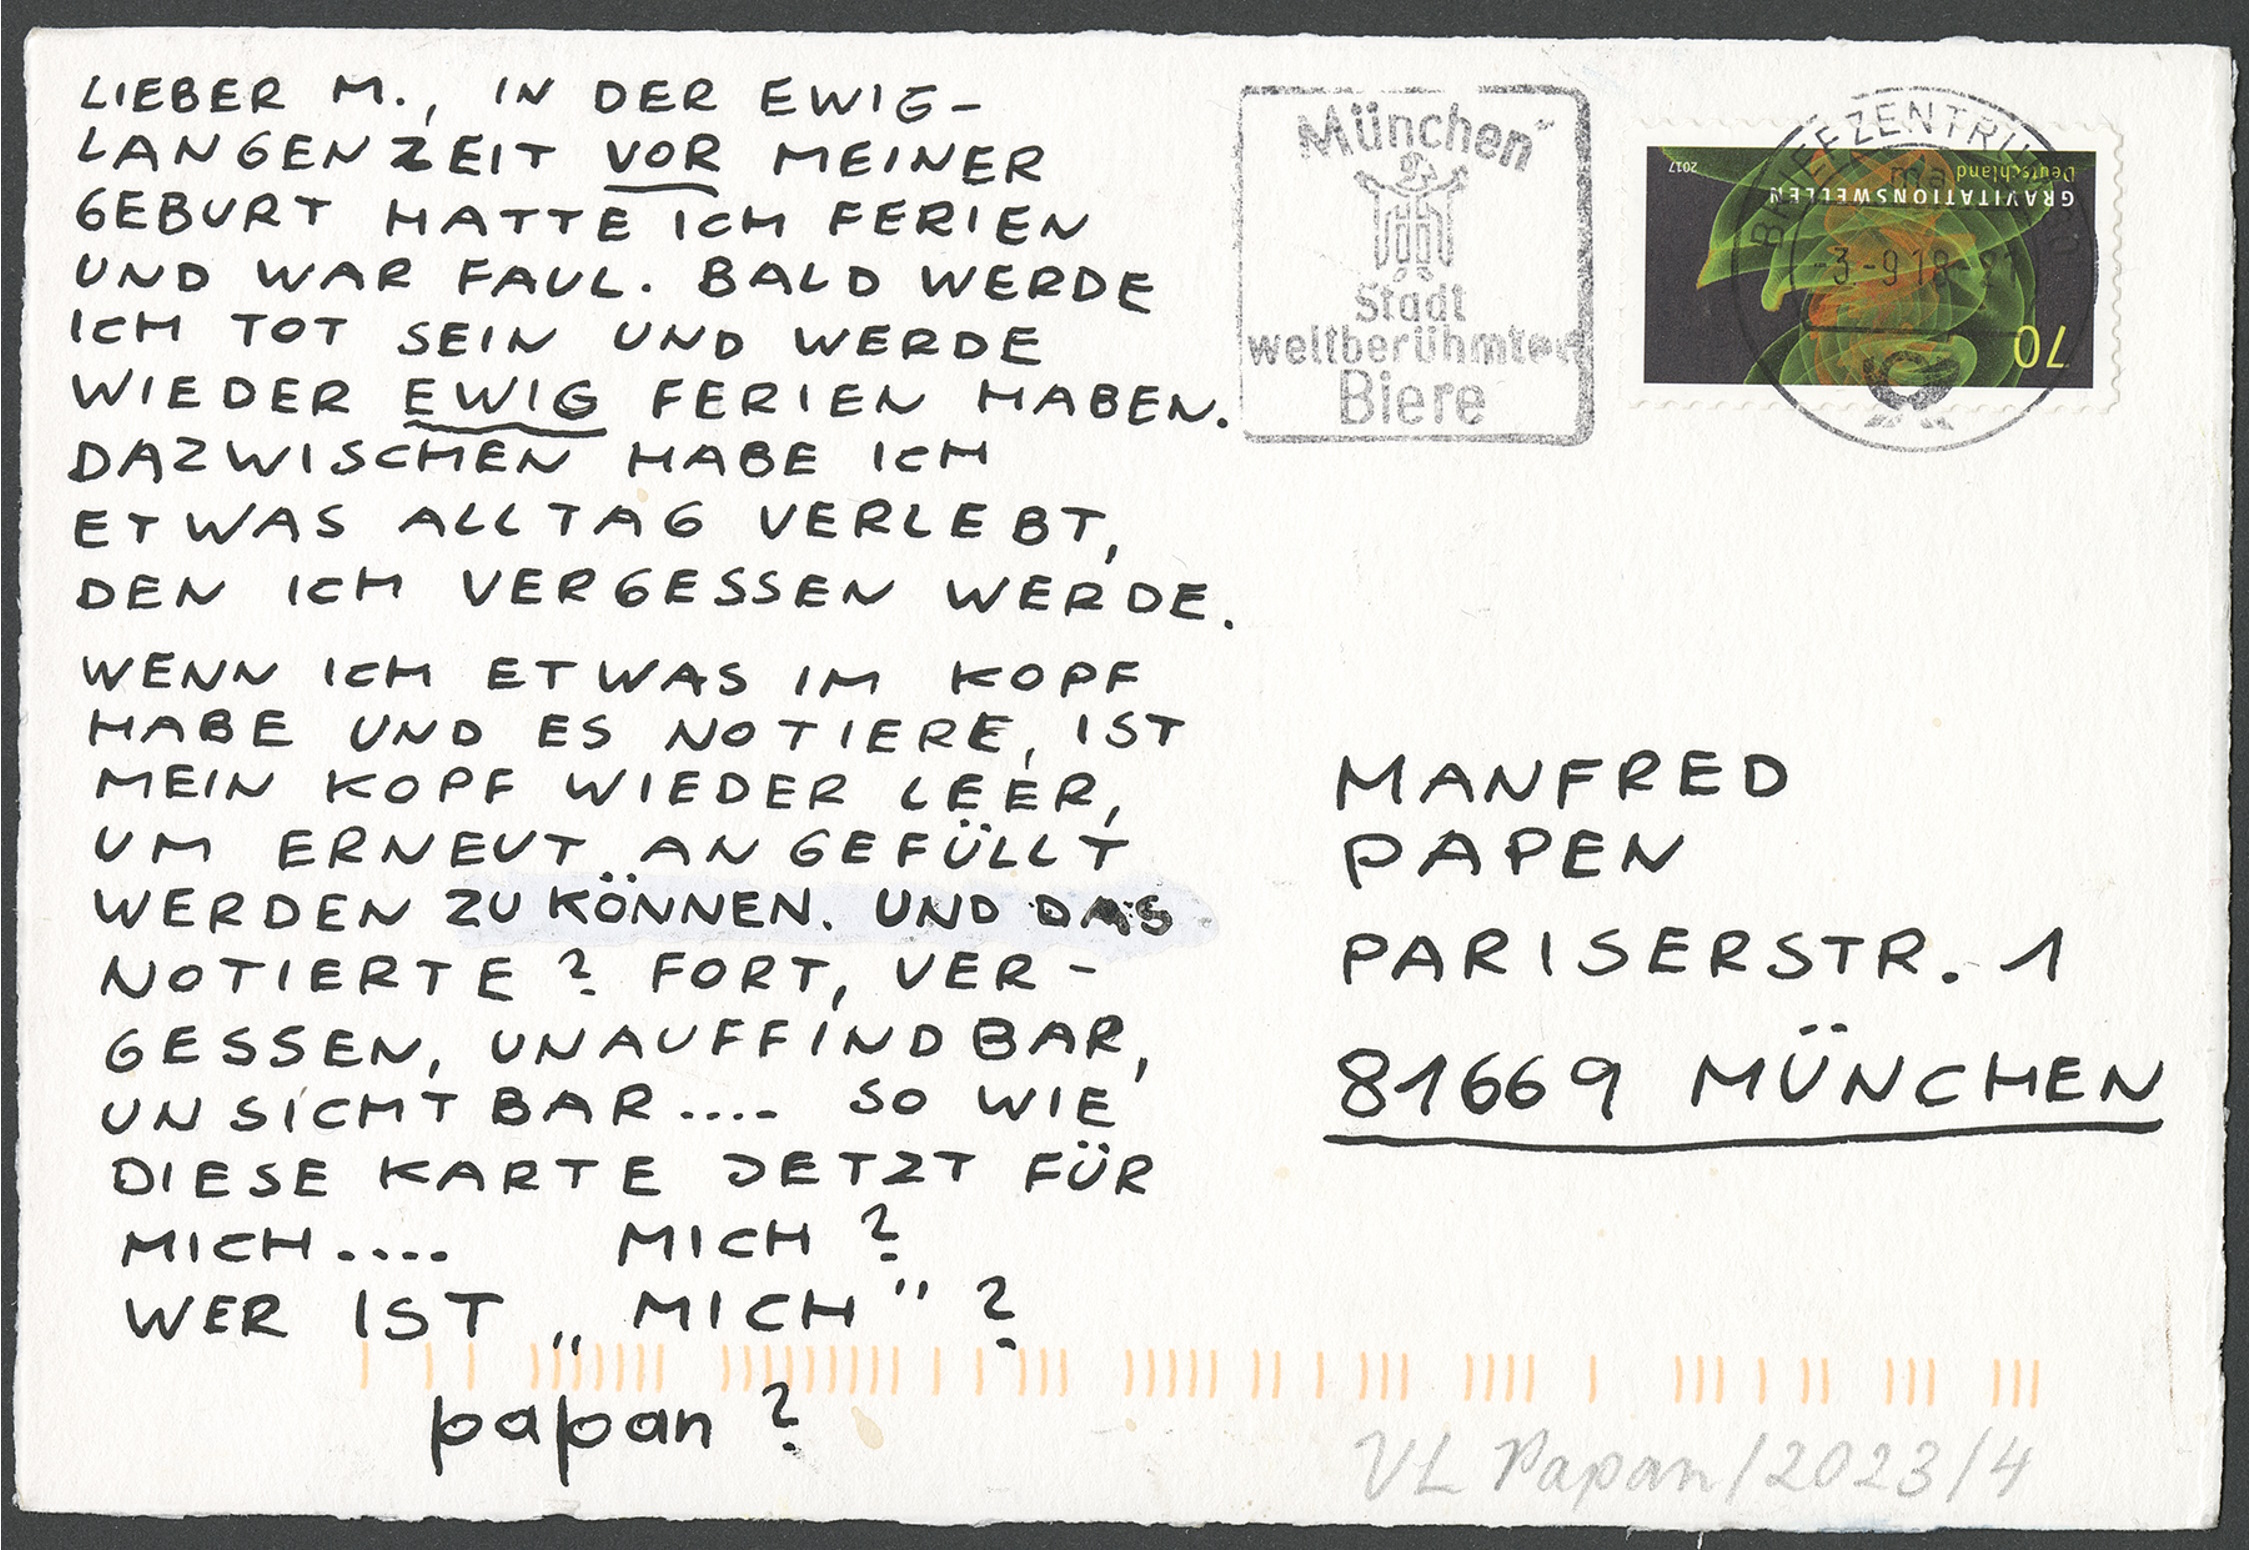 LIEBER M., IN DER EWIG-
LANGENZEIT VOR MEINER
GEBURT HATTE ICH FERIEN
UND WAR FAUL. BALD WERDE
ICH TOT SEIN UND WERDE
WIEDER EWIG FERIEN HABEN.
DAZWISCHEN HABE ICH
ETWAS ALLTAG VERLEBT,
DEN ICH VERGESSEN WERDE.
WENN ICH ETWAS IM KOPF
HABE UND ES NOTIERE, IST
MEIN KOPF WIEDER LEER,
UM ERNEUT ANGEFÜLLT
WERDEN ZU KÖNNEN. UND DAS
NOTIERTE? FORT, VER-
GESSEN, UNAUFFINDBAR,
UNSICHTBAR.... SO WIE
DIESE KARTE JETZT FÜR
MICH.... MICH?
WER IST „MICH"?
papan?
München
Stadt
weltberühmter
Biere
BRIEFZENTRUM
-3.-9.18-21
2017
Deutschland
GRAVITATIONSWELLEN
70
MANFRED
PAPEN
PARISERSTR. 1
81669 MÜNCHEN
VL Papan/2023/4